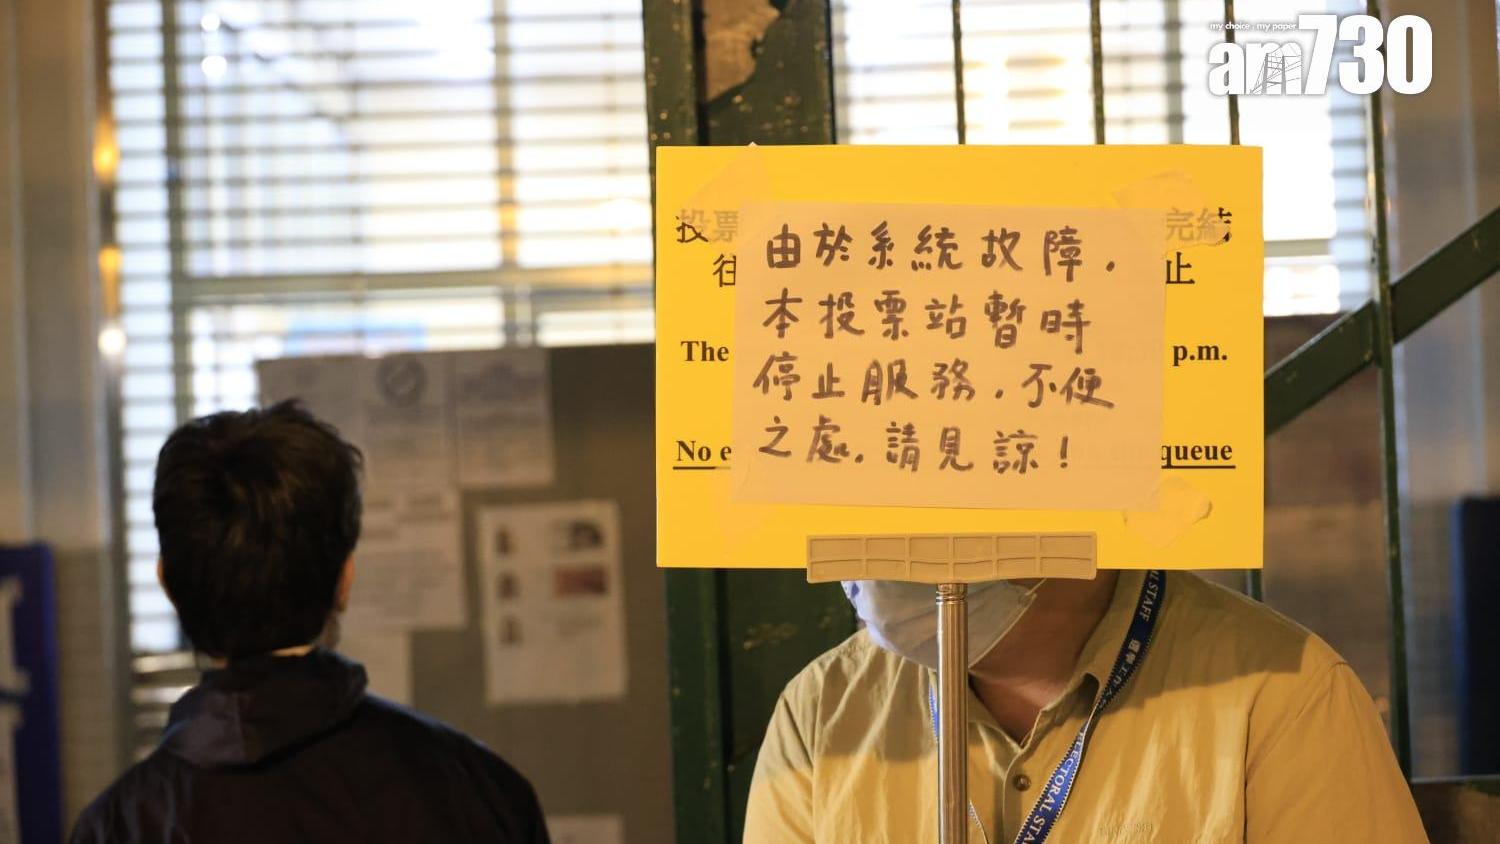 my choice . my paper
am730
投票 完結
往 止
由於系統故障，
本投票站暫時
停止服務，不便
之處，請見諒！
The p.m.
No e queue
ELECTORAL STAFF